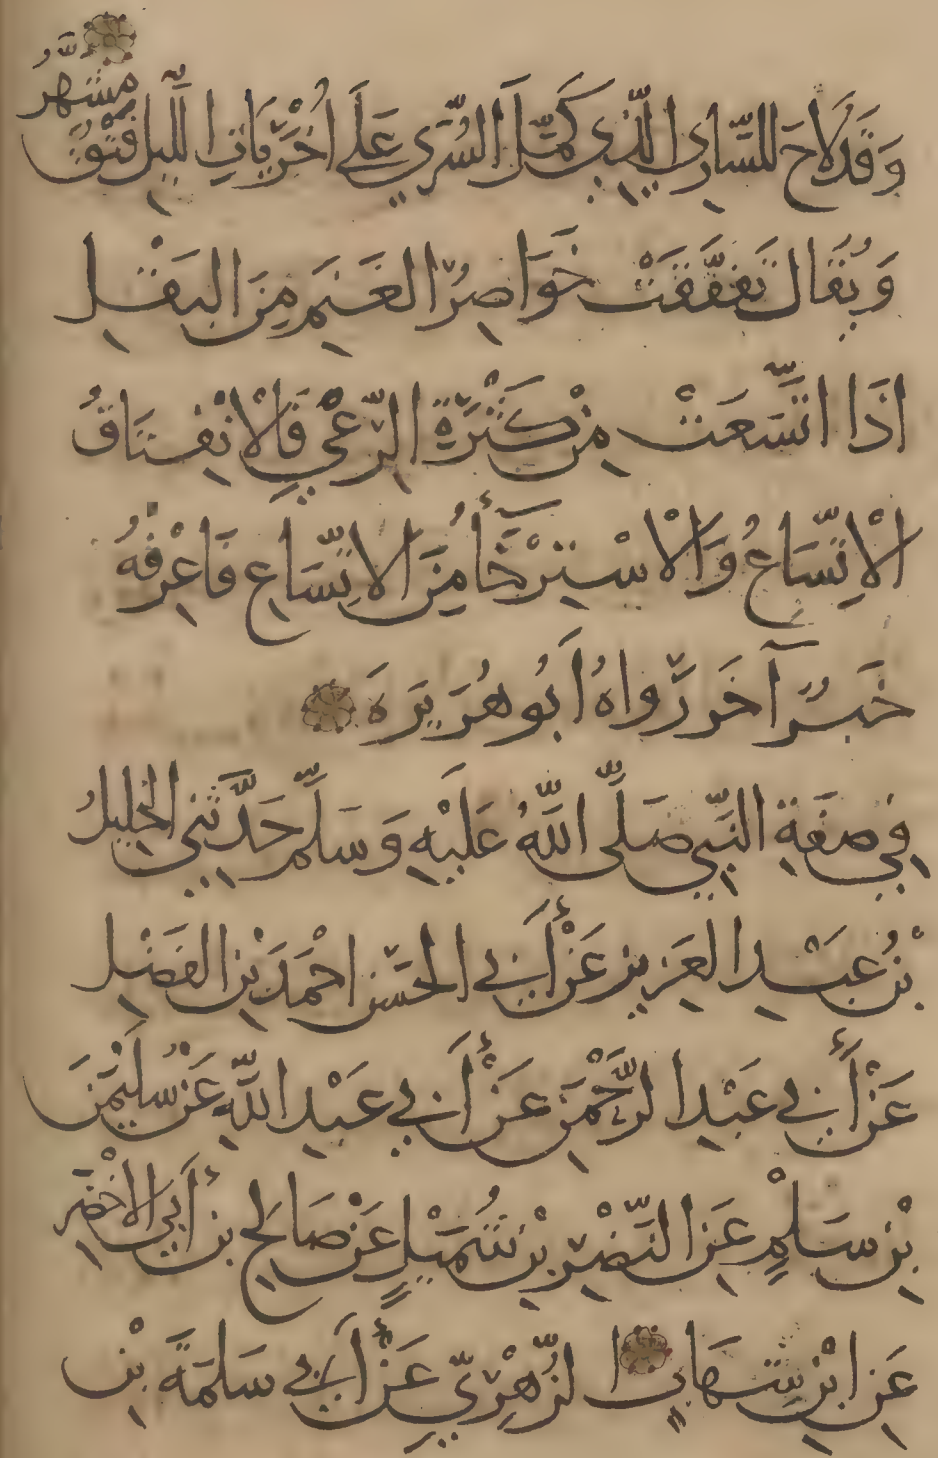 وَقَدْ لَاحَ لِلسَّارِي الَّذِي كَمَّلَ السُّرَى عَلَى أُخْرَيَاتِ اللَّيْلِ فَتْقٌ مُشَهَّرُ
وَيُقَالُ تَفَتَّقَتْ خَوَاصِرُ الغَنَمِ مِنَ البَقْلِ
اذَا اتَّسَعَتْ مِنْ كَثْرَةِ الرَّعْيِ فَالْانْفِتَاقُ
الْاتِّسَاعُ وَالْاسْتِرْخَآءُ مِنَ الاتِّسَاعِ فَاعْرِفْهُ
خَبَرٌ آخَر رَوَاهُ أَبُو هُرَيرَةَ
فِي صِفَةِ النَّبِيِّ صَلَّى اللَّهُ عَلَيْهِ وَسَلَّم حَدَّثَنِي الخَلِيلُ
بْنُ عَبْدِ العَزِيزِ عَنْ أَبِي الحَسَنِ احْمَدَ بْنِ الفَضْلِ
عَنْ أَبِي عَبْدِ الرَّحْمٰنِ عَنْ أَبِي عَبْدِ اللَّهِ عَنْ سُلَيْمٰنَ
بْنِ سَلْمٍ عَنِ النَّضْرِ بْنِ شُمَيْلٍ عَنْ صَالِحِ بنِ أَبِي الاخْضَرِ
عَنِ ابْنِ شِهَابٍ الزُّهْرِيِّ عَنْ أَبِي سَلَمَةَ بْنِ